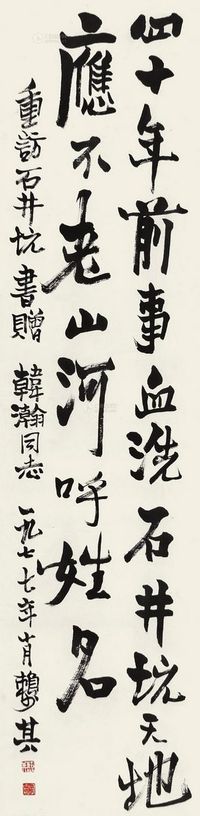 四十年前事血洗石井坑天地
應不老山河呼姓名
重訪石井坑書贈 韓瀚同志 一九七七年十月 賴少其